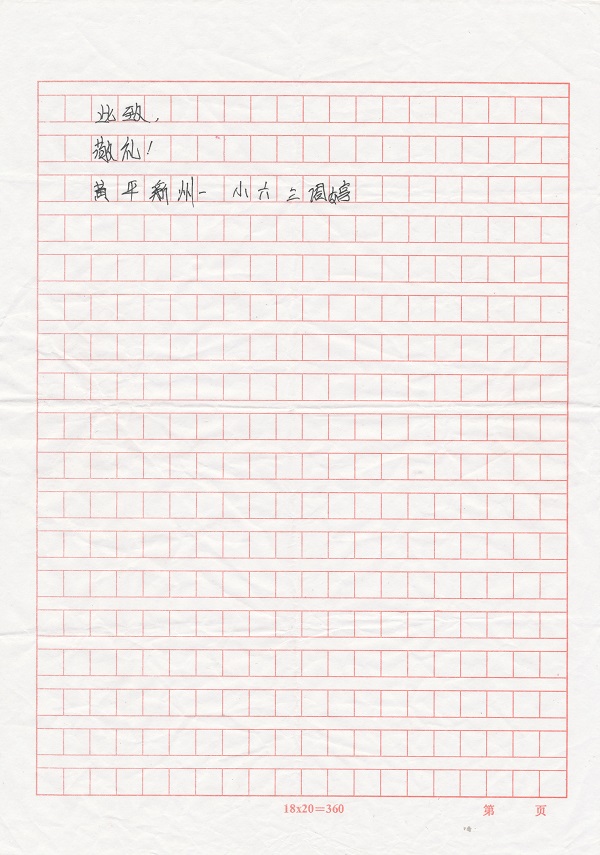 此致,
敬礼!
黄平新州一小六三周婷
18x20=360
第 页